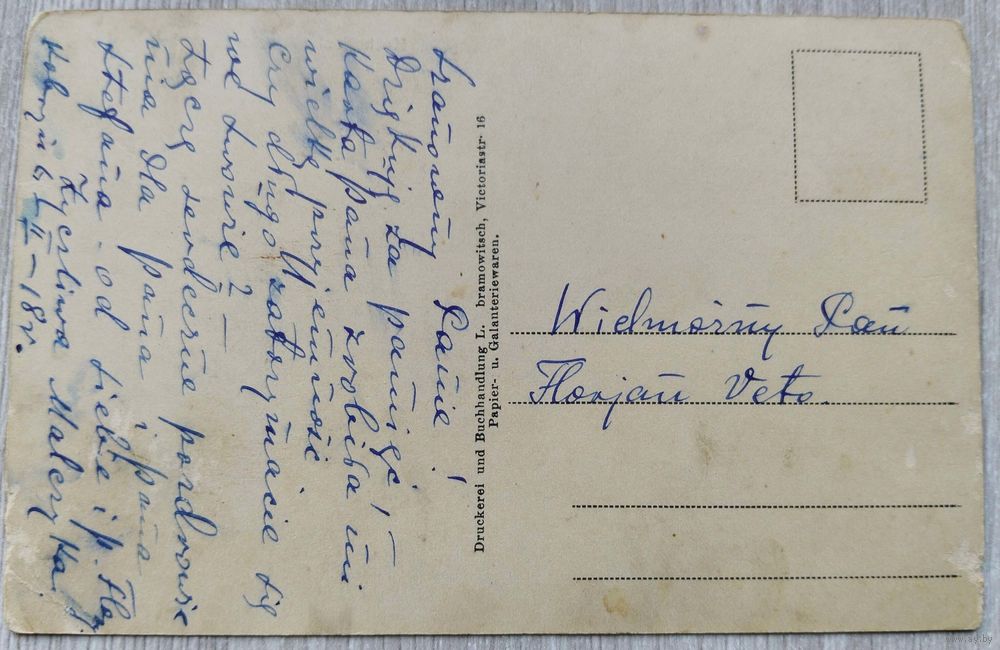 Szanowny Panie!
Dziękuję za pamięć, –
Karta Pana zrobiła mi
wielką przyjemność
Czy długo zatrzymacie się
we Lwowie? –
Łączę serdeczne pozdrowie
nia dla Pana i Pana
Stefana. od siebie i p. Flor
Życzliwa Malczyka.
6/II – 18r.
Druckerei und Buchhandlung L. bramowitsch, Victoriastr. 16
Papier- u. Galanteriewaren.
Wielmożny Pan
Florjan Veto.
www.ay.by